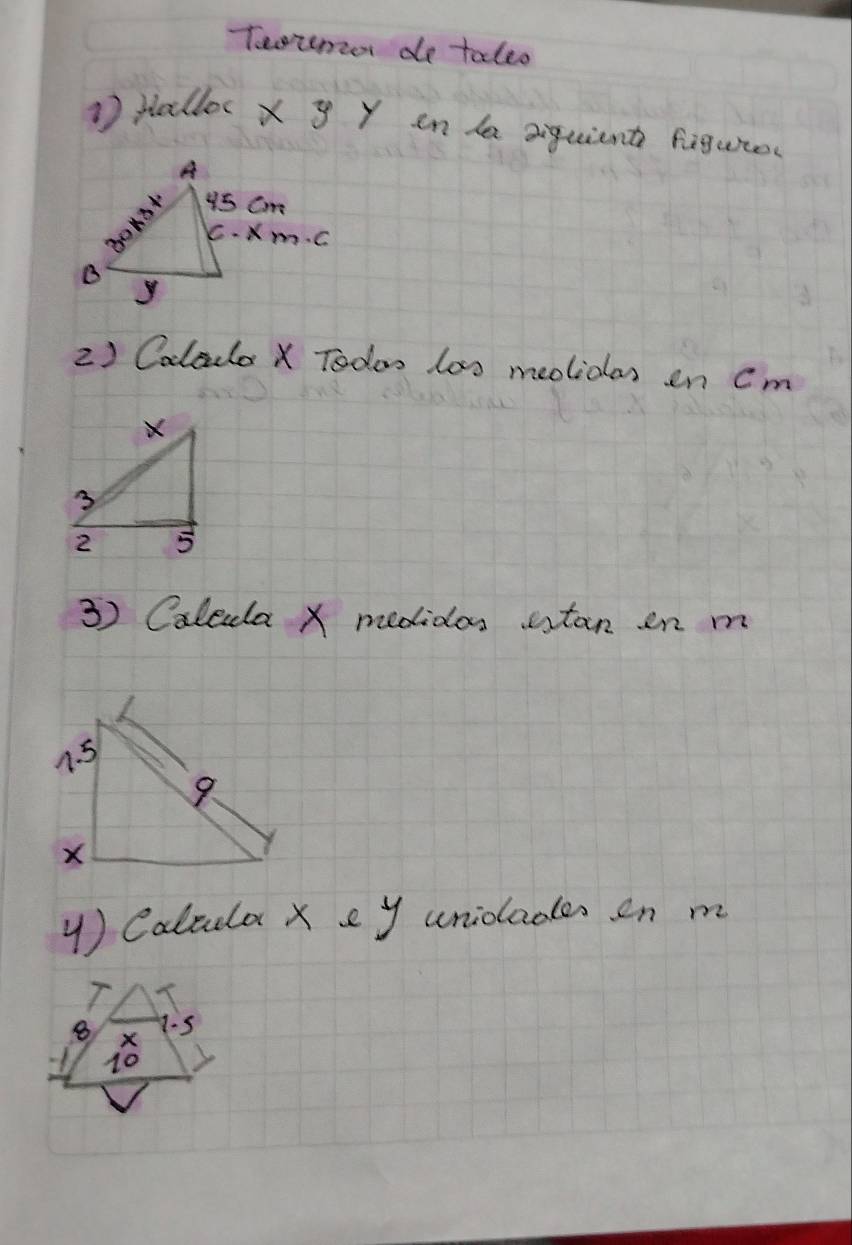 Teorema de tales
1) Hallar x y y en la siguiente figura
A
45 cm
30x3x
C. x m.c
B
y
2) Calcula x Todas las medidas en cm
x
3
2 5
3) Calcula x medidas estan en m
1.5
9
x
4) Calcula x e y unidades en m
8 x 1.5
10